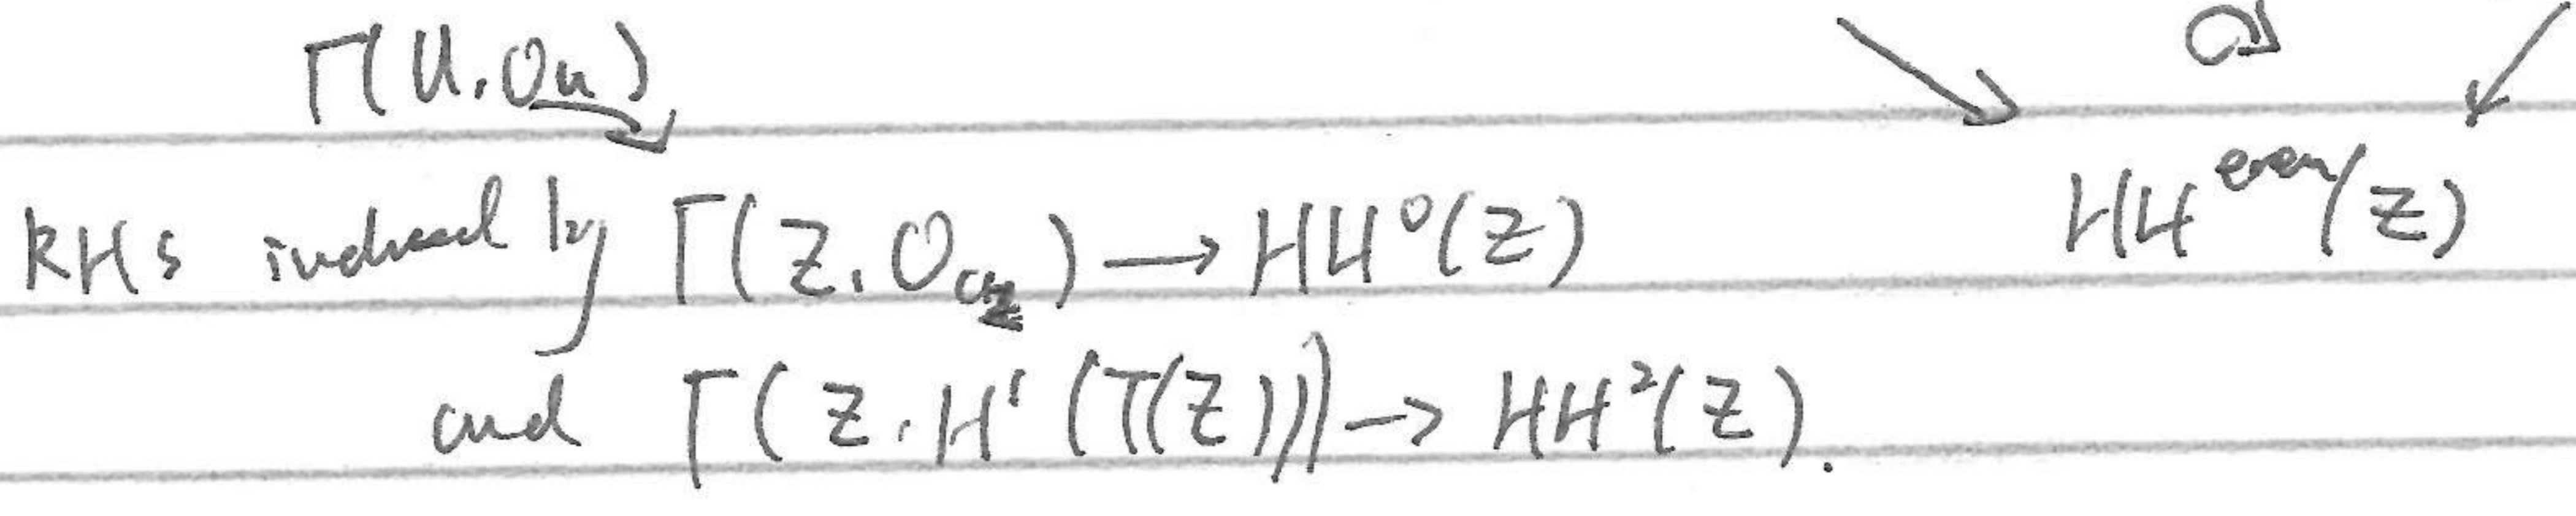 Γ(U, O_U)
RHS induced by Γ(Z, O_Z) → HH⁰(Z) HH^even(Z)
and Γ(Z, H¹(T(Z))) → HH²(Z).